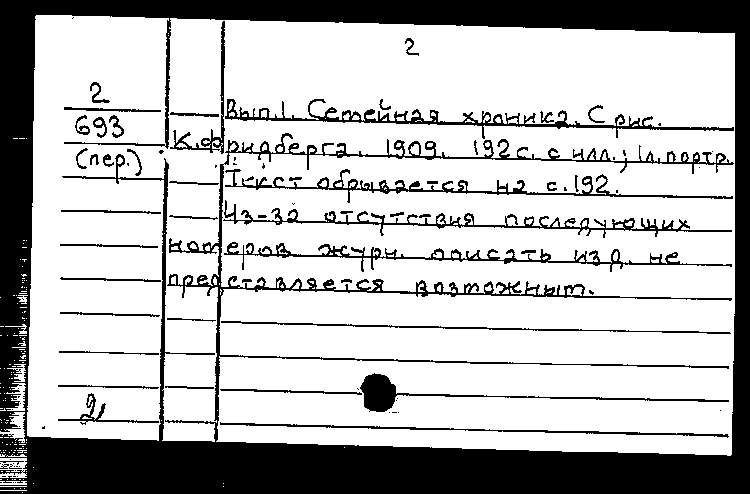 2
2
693
(пер.)
Вып.1. Семейная хроника. С рис.
К.Фридберга. 1909. 192 с. с илл.; 1л. портр.
Текст обрывается на с.192.
Из-за отсутствия последующих
номеров журн. описать изд. не
представляется возможным.
2